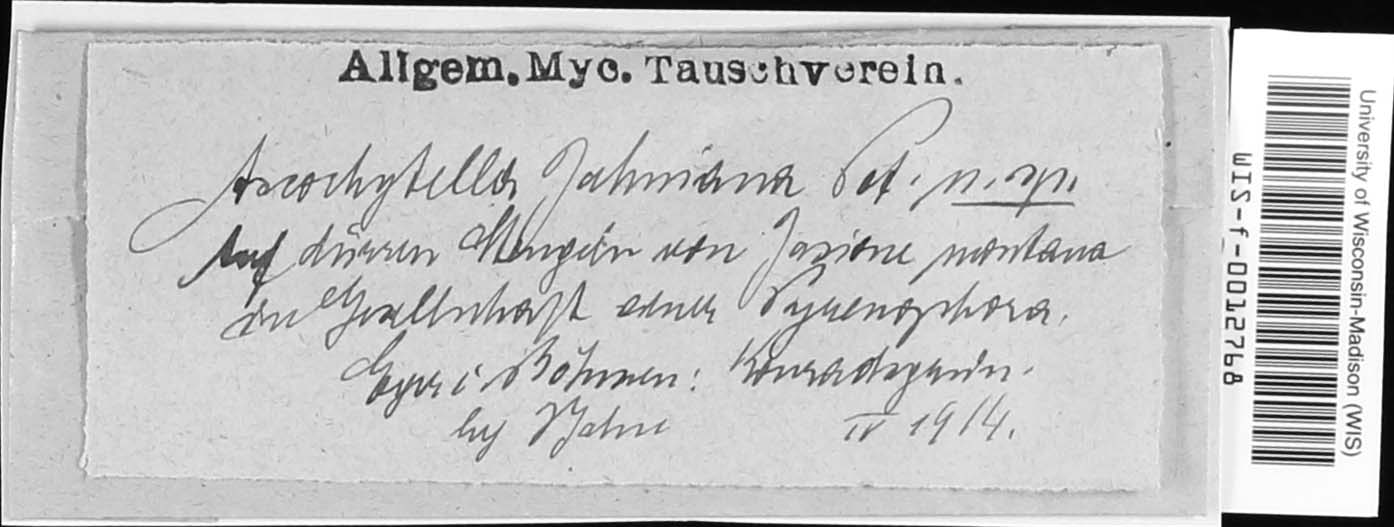 Allgem. Myc. Tauschverein.
Ascochytella Jahniana Pet. n. sp.
Auf dürren Stengeln von Jasione montana
in Gesellschaft einer Pyrenophora.
Eger i. Böhmen: Konradsgrün.
leg Jahn IV 1914.
University of Wisconsin-Madison (WIS)
WIS-f-0012768